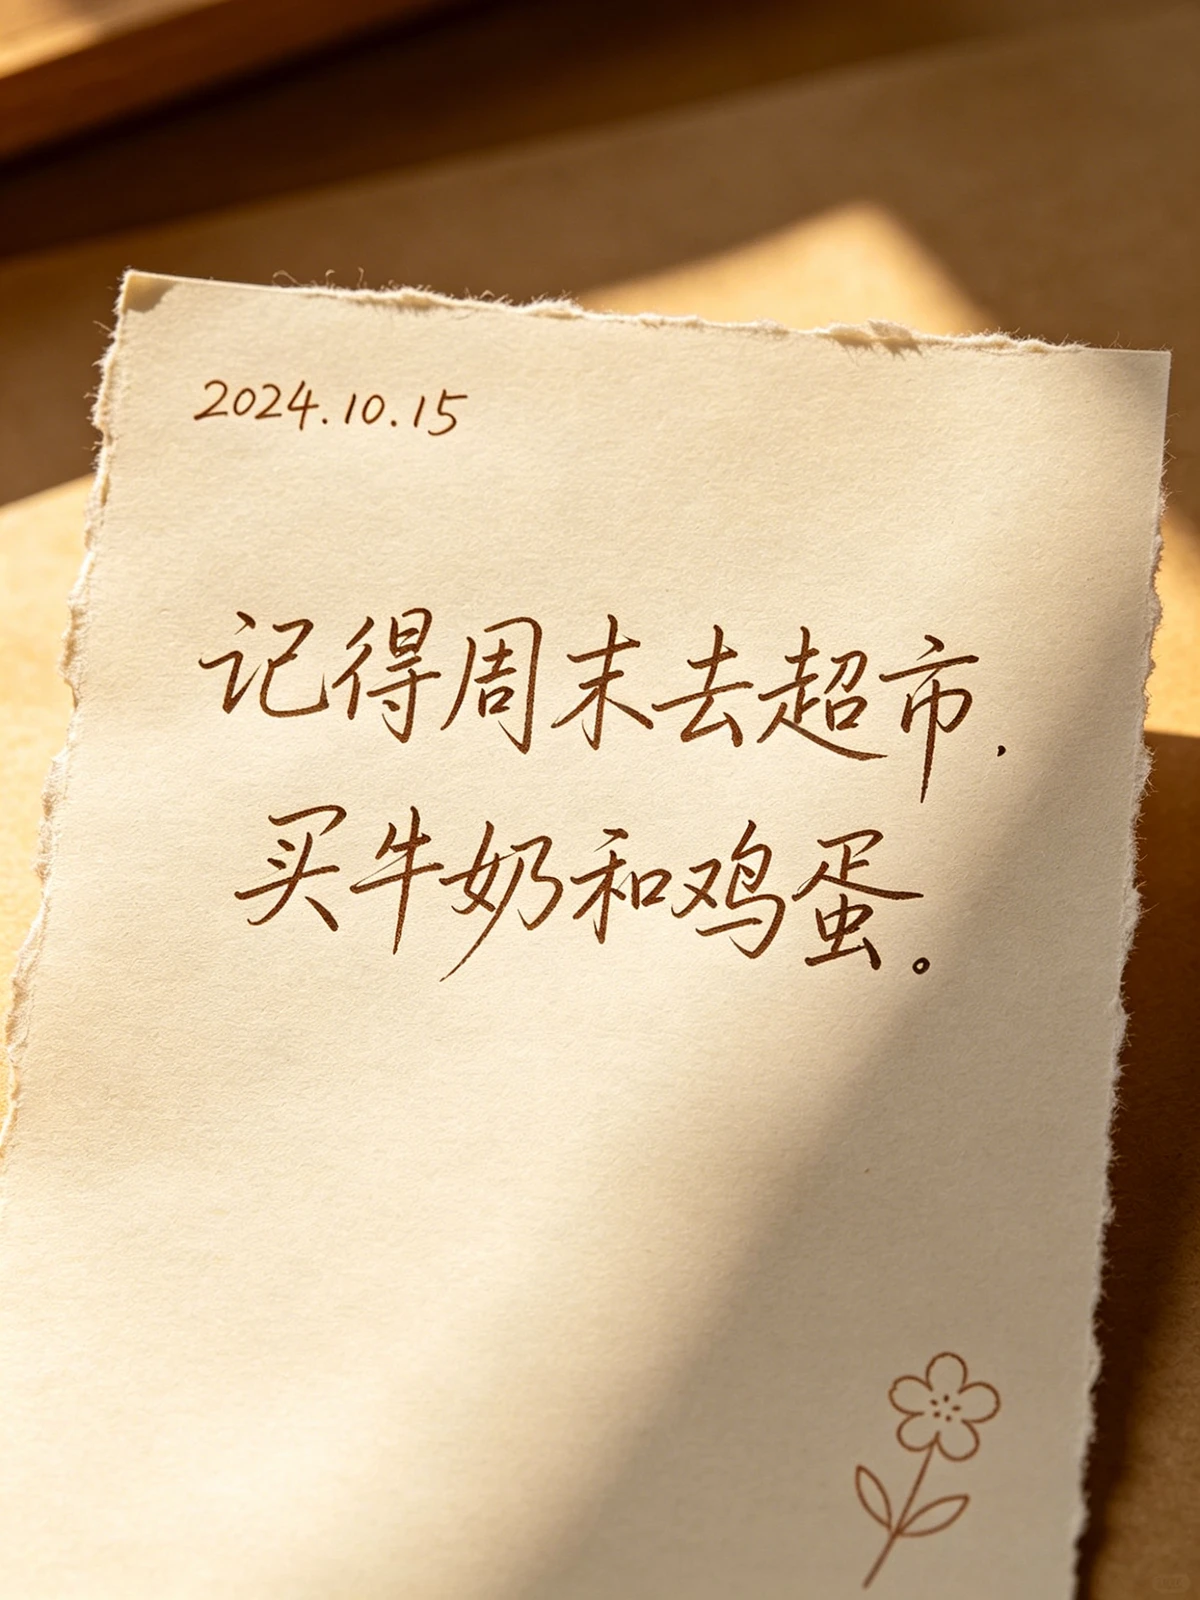 2024.10.15
记得周末去超市.
买牛奶和鸡蛋。